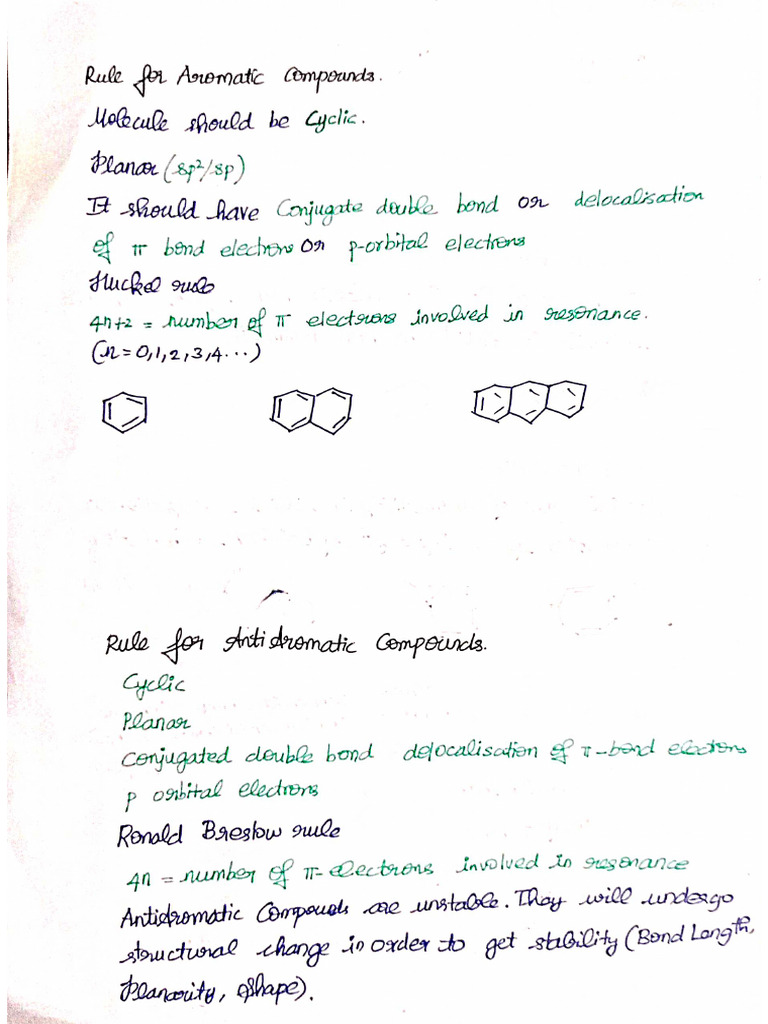 Rule for Aromatic Compounds.
Molecule should be Cyclic.
Planar (sp²/sp)
It should have Conjugate double bond or delocalisation
of π bond electrons or p-orbital electrons
Huckel rule
4n+2 = number of π electrons involved in resonance.
(n = 0,1,2,3,4...)
Rule for Antiaromatic Compounds.
Cyclic
Planar
Conjugated double bond delocalisation of π-bond electons
p orbital electrons
Ronald Breslow rule
4n = number of π-electrons involved in resonance
Antiaromatic Compouds are unstable. They will undergo
structural change in order to get stability (Bond Length,
Planarity, shape).